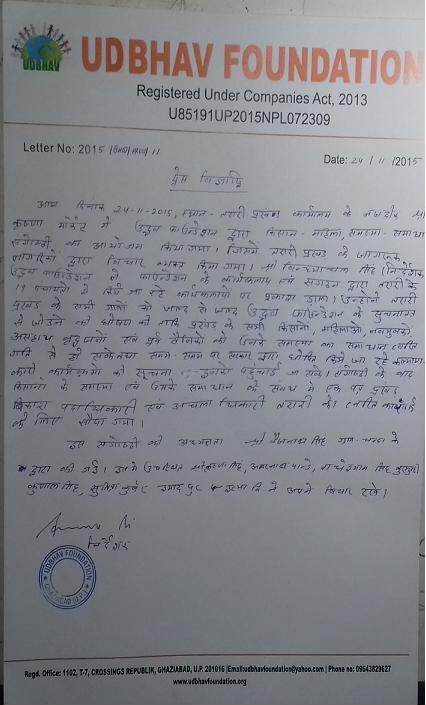 UDBHAV
UDBHAV FOUNDATION
Registered Under Companies Act, 2013
U85191UP2015NPL072309
Letter No: 2015 /11
Date: 24 / 11 /2015
प्रेस विज्ञप्ति
आज दिनांक 24-11-2015, स्थान - तरारी प्रखण्ड कार्यालय के नजदीक श्री
कृष्णा मार्केट में उद्भव फाउन्डेशन द्वारा किसान - महिला, समस्या - समाधान
संगोष्ठी का आयोजन किया गया। जिसमें तरारी प्रखण्ड के जागरूक
नागरिकों द्वारा विचार व्यक्त किया गया। श्री सिंह (निदेशक,
उद्भव फाउन्डेशन ने फाउन्डेशन के कार्यकलाप एवं संगठन द्वारा तरारी के
19 पंचायतों में किये जा रहे कार्यकलापों पर प्रकाश डाला। उन्होंने तरारी
प्रखण्ड के सभी गांवों को जल्द से जल्द उद्भव फाउन्डेशन के सूचनातंत्र
से जोड़ने की घोषणा की ताकि प्रखण्ड के सभी किसानों, महिलाओं, नवयुवकों,
असहाय वृद्धजनों एवं पूर्व सैनिकों को उनके समस्या का समाधान त्वरित
गति से हो सके तथा समय - समय पर सरकार द्वारा घोषित किये जा रहे कल्याण-
कारी कार्यक्रमों की सूचना उनको पहुंचाई जा सके। संगोष्ठी के बाद
किसानों के समस्या एवं उनके समाधान के संबंध में एक पत्र प्रखंड
विकास पदाधिकारी एवं अंचलाधिकारी तरारी को त्वरित कार्रवाई
के लिए सौंपा गया।
इस संगोष्ठी की अध्यक्षता श्री बैजनाथ सिंह
द्वारा की गई। इसमें उपस्थित सिंह, पान्डे,
सिंह, ने अपने विचार रखे।
निदेशक
UDBHAV FOUNDATION
GHAZIABAD (U.P.)
Regd. Office: 1102, T-7, CROSSINGS REPUBLIK, GHAZIABAD, U.P. 201016 |Email:udbhavfoundation@yahoo.com | Phone no: 09643829627
www.udbhavfoundation.org